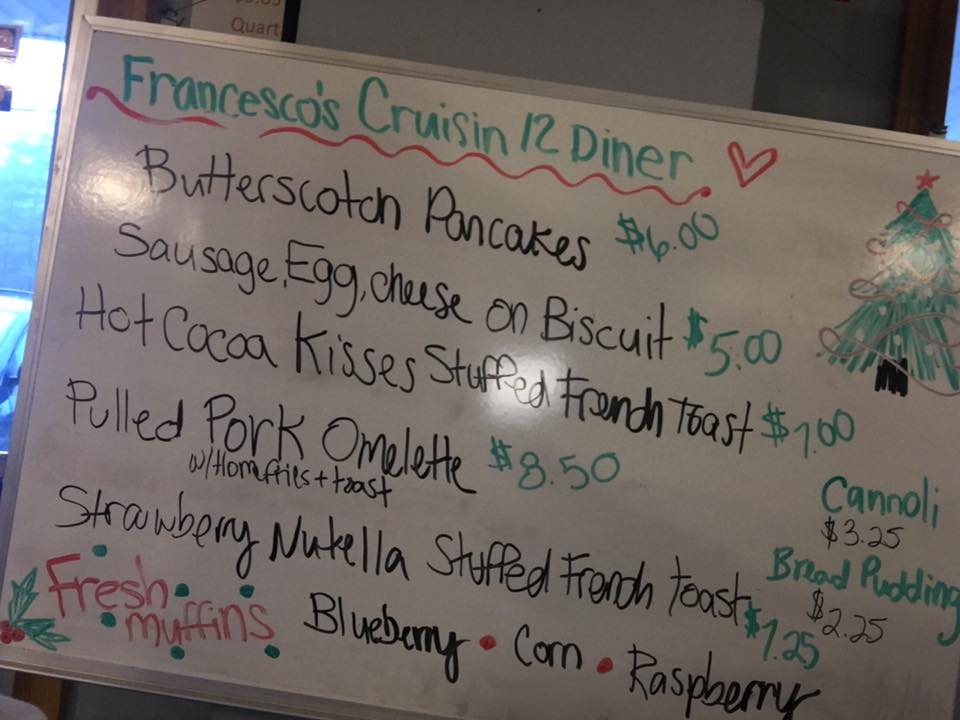 Quart
Francesco's Cruisin 12 Diner
Butterscotch Pancakes $6.00
Sausage, Egg, cheese on Biscuit $5.00
Hot Cocoa Kisses Stuffed French Toast $7.00
Pulled Pork Omelette $8.50
w/Homefries + toast
Strawberry Nutella Stuffed French Toast $7.25
Cannoli
$3.25
Bread Pudding
$2.25
Fresh muffins Blueberry • Corn • Raspberry